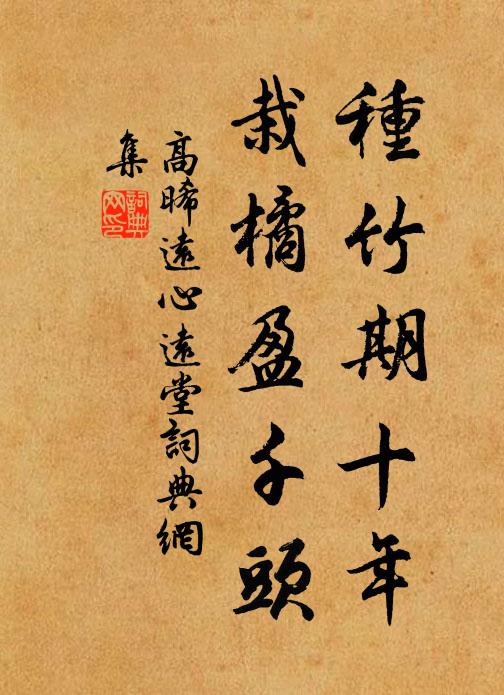 種竹期十年
栽橘盈千頭
高晞遠心遠堂詞典網
集
詞典網印